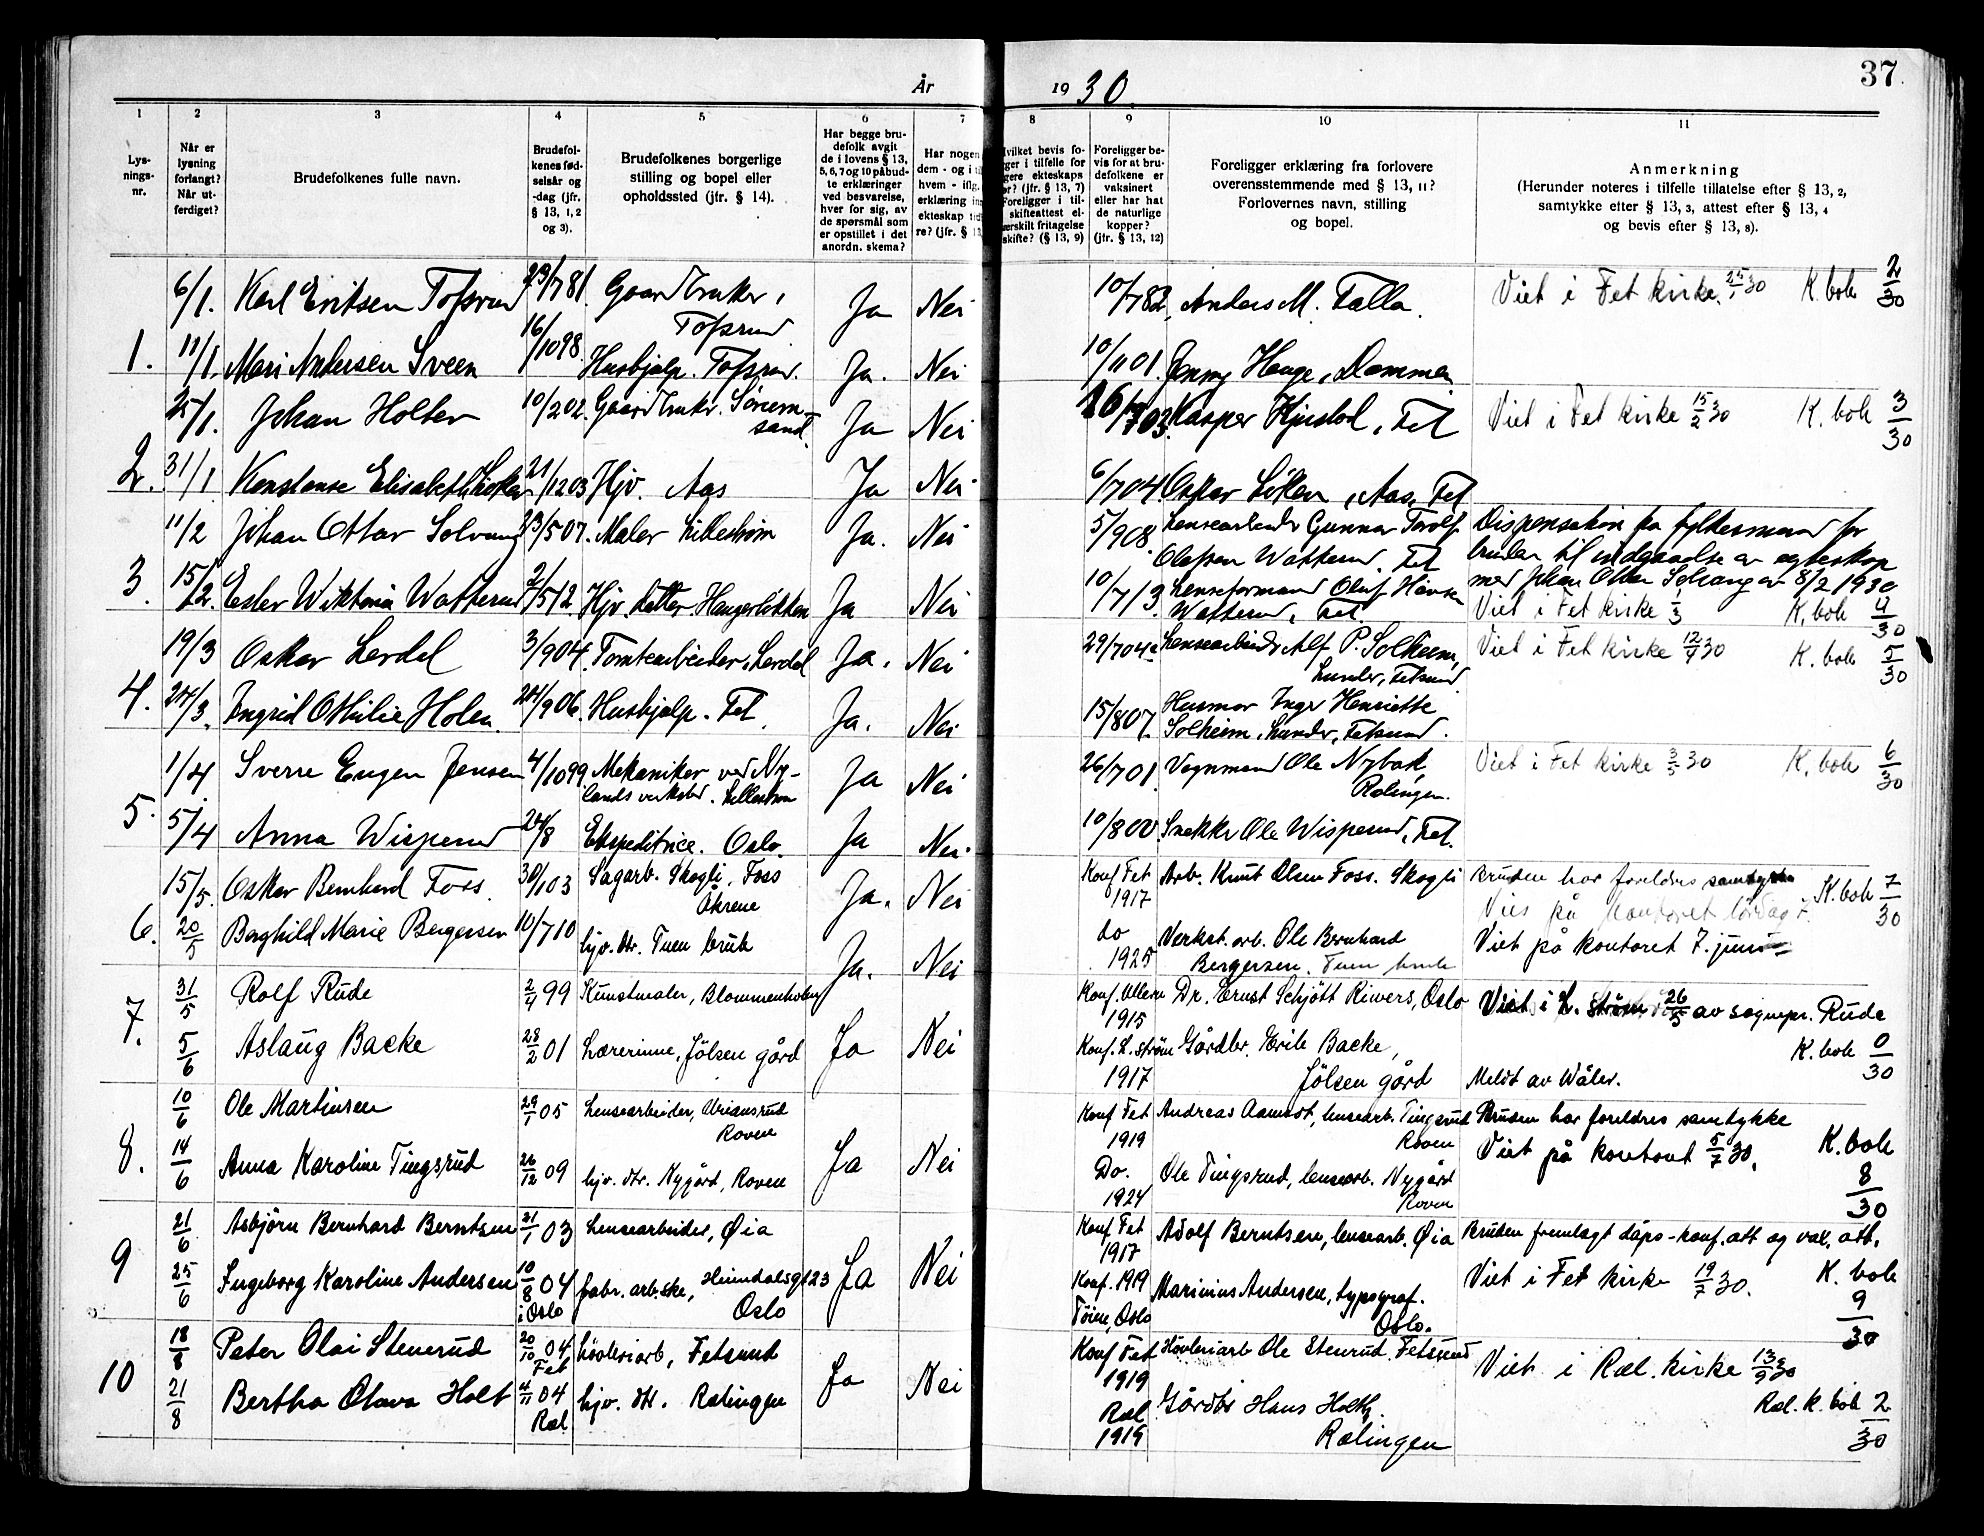 År 1930. 37
1 2 3 4 5 6 7 8 9 10 11
Lysningsnr.
Når er lysning forlangt? Når utferdiget?
Brudefolkenes fulle navn.
Brudefolkenes fødselsår og -dag (jfr. § 13, 1, 2 og 3).
Brudefolkenes borgerlige stilling og bopel eller opholdssted (jfr. § 14).
Har begge brudefolk avgit de i lovens § 13, 5, 6, 7 og 10 påbudte erklæringer ved besvarelse, hver for sig, av de spørsmål som er opstillet i det anordn. skema?
Har nogen
dem - og i
hvem - iflg.
erklæring
ekteskap
re? (jfr. § 13
Hvilket bevis fo-
ger i tilfelle for
gere ekteskaps
r? (jfr. § 13, 7)
Foreligger i til-
skifteattest el-
ærskilt fritagelse
skifte? (§ 13, 9)
Foreligger bevis for at brudefolkene er vaksinert eller har hat de naturlige kopper? (jfr. § 13, 12)
Foreligger erklæring fra forlovere overensstemmende med § 13, 11? Forlovernes navn, stilling og bopel.
Anmerkning
(Herunder noteres i tilfelle tillatelse efter § 13, 2, samtykke efter § 13, 3, attest efter § 13, 4 og bevis efter § 13, 8).
6/1. Karl Eriksen Tofsrud 23/7 81. Gaardbruker, Tofsrud Ja Nei 10/7 82, Anders M. Falla. Viet i Fet kirke 25/1 30 K. bok 2/30
1. 11/1. Mari Andersen Sveen 16/10 98. Hushjelp. Tofsrud. Ja. Nei 10/11 01. Jenny Hauge, Dammen
25/1. Johan Holter 10/2 02. Gaardbruker. Sørumsand. Ja Nei Kasper Kjustad, Fet Viet i Fet kirke 15/2 30 K. bok 3/30
2. 31/1 Konstanse Elisabeth Løken 21/12 03 Hjv. Aas Ja Nei 6/7 04 Oskar Løken, Aas, Fet
11/2 Johan Ottar Solvang 23/5 07. Maler Lillestrøm Ja. Nei 5/9 08. Lensearbeider Gunnar Torolf Olafsen Watterud. Fet Dispensation fra fylkesmand for bruden til indgaaelse av egteskap med Johan Ottar Solvang av 8/2 1930
3. 15/2. Ester Wiktoria Watterud 2/5 12. Hjv. datter Haugerløkken Ja Nei 10/7 13 Lenseformand Oluf Hansen Watterud, Fet. Viet i Fet kirke 1/3 K. bok 4/30
19/3 Oskar Lerdal 3/9 04. Tomtearbeider, Lerdal Ja. Nei 29/7 04 Lensearbeider Alf P. Solheim, Lunder, Fetsund Viet i Fet kirke 12/4 30 K. bok 5/30
4. 24/3. Ingrid Othilie Holen 24/9 06. Hushjelp. Fet. Ja. Nei 15/8 07. Husmor Inger Henriette Solheim, Lunder, Fetsund.
1/4 Sverre Eugen Jensen 4/10 99. Mekaniker ved Nylands verksted. Lillestrøm Ja Nei 26/7 01. Vognmand Ole Nybak Rælingen. Viet i Fet kirke 3/5 30 K. bok 6/30
5. 5/4 Anna Wisperud 24/8 Ekspeditrice. Oslo. Ja Nei. 10/8 00. Snekker Ole Wisperud, Fet.
15/5. Oskar Bernhard Foss. 30/1 03 Sagarb. Skogli, Foss Åkrene Ja. Nei Konf Fet 1917 Arb. Knut Olsen Foss. Skogli Bruden har foreldres samtykke K. bok 7/30
Vies på kontoret lørdag 7.
6. 20/5 Borghild Marie Bergersen 10/7 10 hjv. dtr. Tuen bruk Ja. Nei do 1925 Verkst. arb. Ole Bernhard Bergersen. Tuen bruk Viet på kontoret 7. juni
7. 31/5 Rolf Rude 2/4 99 Kunstmaler, Blommenholm Konf. Ullern 1915 Dr. Ernst Schjøtt Riwers, Oslo Viet i L. strøm 26/5 av sognepr. Rude
5/6 Aslaug Backe 28/2 01 Lærerinne, Jølsen gård Ja Nei Konf. L. strøm 1917 Gårdbr. Erik Backe, Jølsen gård K. bok 0/30
Meldt av Wåler.
10/6 Ole Martinsen 29/1 05 Lensearbeider, Uriansrud Roven Konf Fet 1919 Andreas Aamodt, lensearb. Tingsrud Roven Bruden har foreldres samtykke
8. 14/6 Anna Karoline Tingsrud 26/12 09 hjv. dtr. Nygård, Roven Ja Nei Do. 1924 Ole Tingsrud, lensearb. Nygård Roven Viet på kontoret 5/7 30. K. bok 8/30
21/6 Asbjørn Bernhard Berntsen 31/1 03 Lensearbeider, Øia Konf Fet 1917 Adolf Berntsen, lensearb. Øia Bruden fremlagt dåps-konf. att og vak. att.
9 25/6 Ingeborg Karoline Andersen 10/8 04 i Oslo fabr. arb.ske, Heimdalsgt 23 Oslo Ja Nei Konf. 1919 Tøien, Oslo Marinius Andersen, typograf. Oslo. Viet i Fet kirke 19/7 30. K. bok 9/30
18/8 Peter Olai Stenerud 20/10 04 Fet Høvleriarb, Fetsund Konf Fet 1919 Høvleriarb Ole Stenrud. Fetsund Viet i Ræl. kirke 13/9 30
10 21/8 Bertha Olava Holt 4/11 04 Ræl hjv. dtr. Rælingen Ja Nei Ræl 1919 Gårdbr Hans Holt, Rælingen Ræl. K. bok 2/30